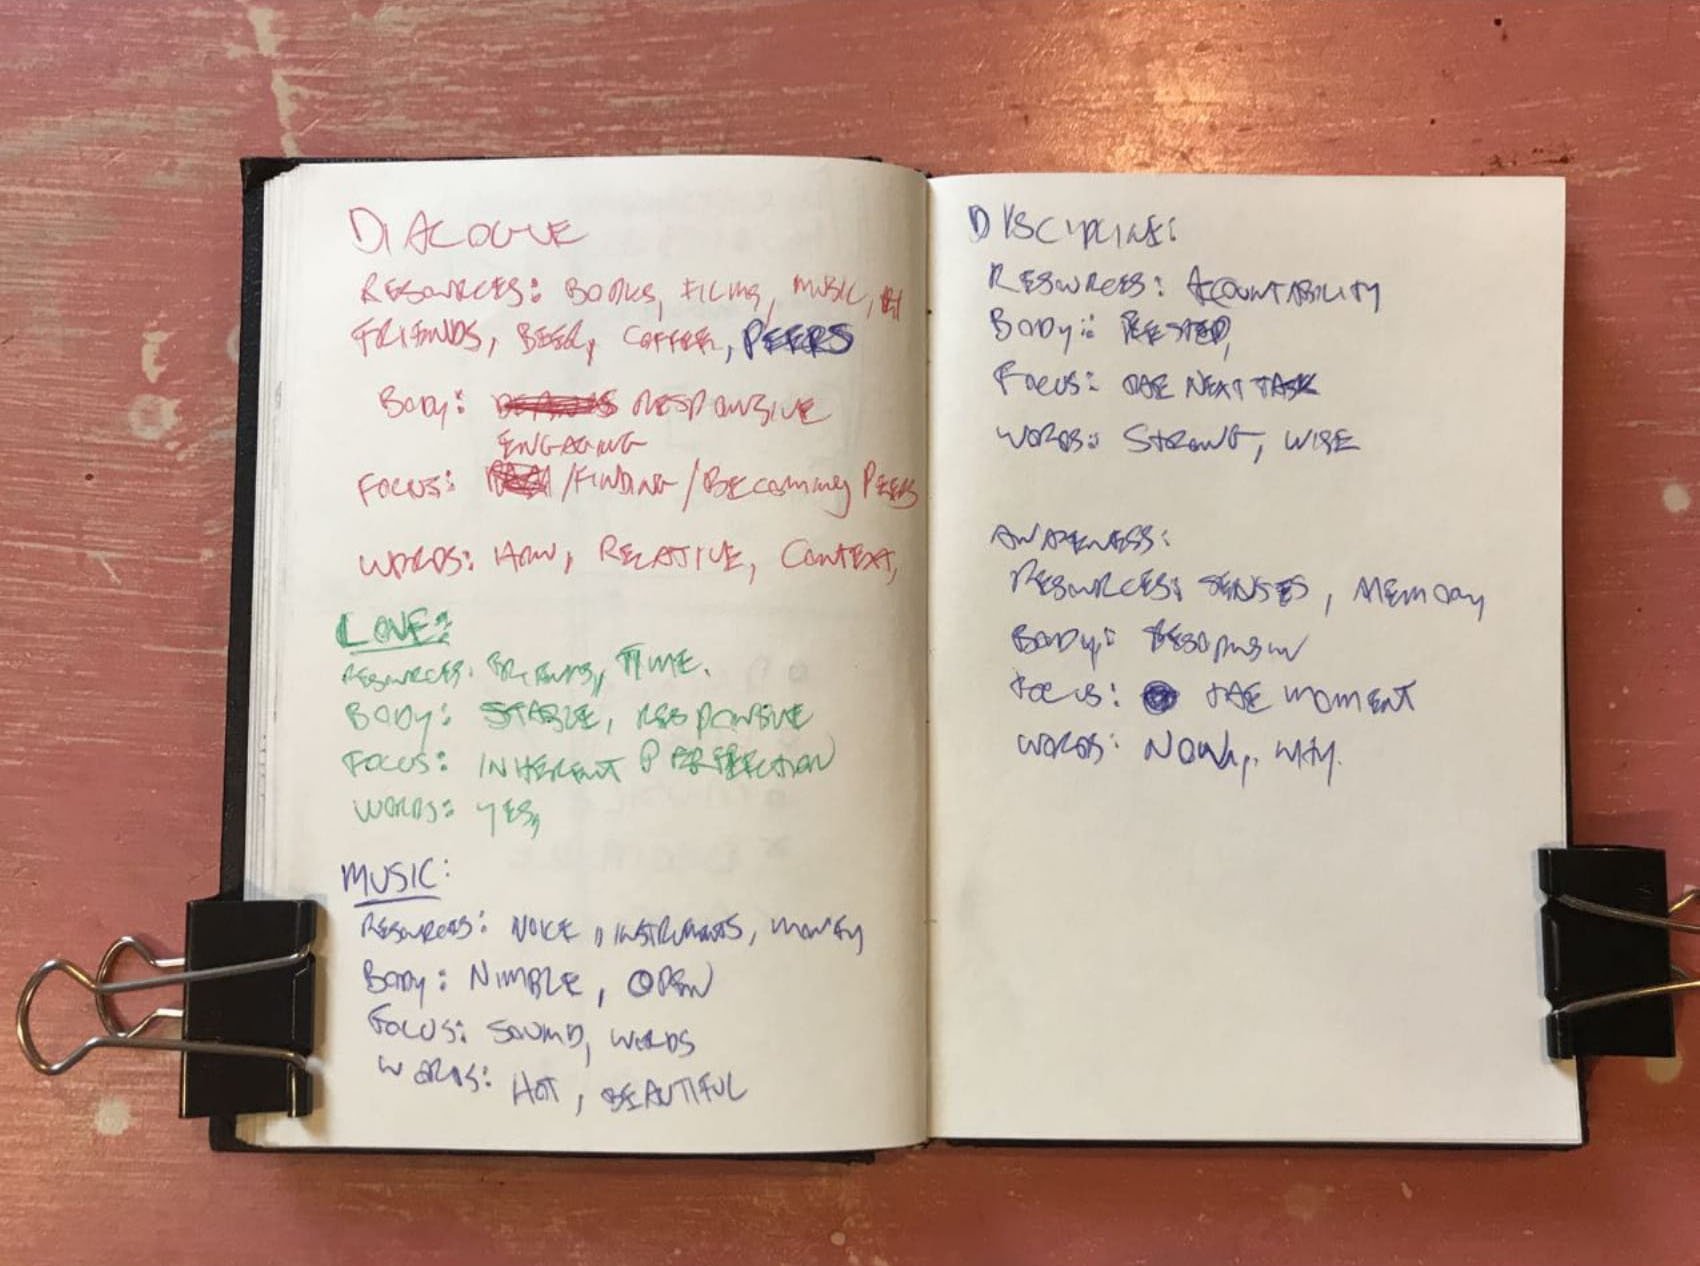 DIALOGUE
RESOURCES: BOOKS, FILMS, MUSIC,
FRIENDS, BEER, COFFEE, PEERS
BODY: RESPONSIVE
ENGAGING
FOCUS: /FINDING/BECOMING PEERS
WORDS: HOW, RELATIVE, CONTEXT,
LOVE:
RESOURCES: FRIENDS, TIME.
BODY: STABLE, RESPONSIVE
FOCUS: INHERENT PERFECTION
WORDS: YES,
MUSIC:
RESOURCES: VOICE, INSTRUMENTS, MONEY
BODY: NIMBLE, OPEN
FOCUS: SOUND, WORDS
WORDS: HOT, BEAUTIFUL
DISCIPLINE:
RESOURCES: ACOUNTABILITY
BODY: RESTED,
FOCUS: THE NEXT TASK
WORDS: STRONG, WISE
AWARENESS:
RESOURCES: SENSES, MEMORY
BODY:
FOCUS: THE MOMENT
WORDS: NOW, WHY.